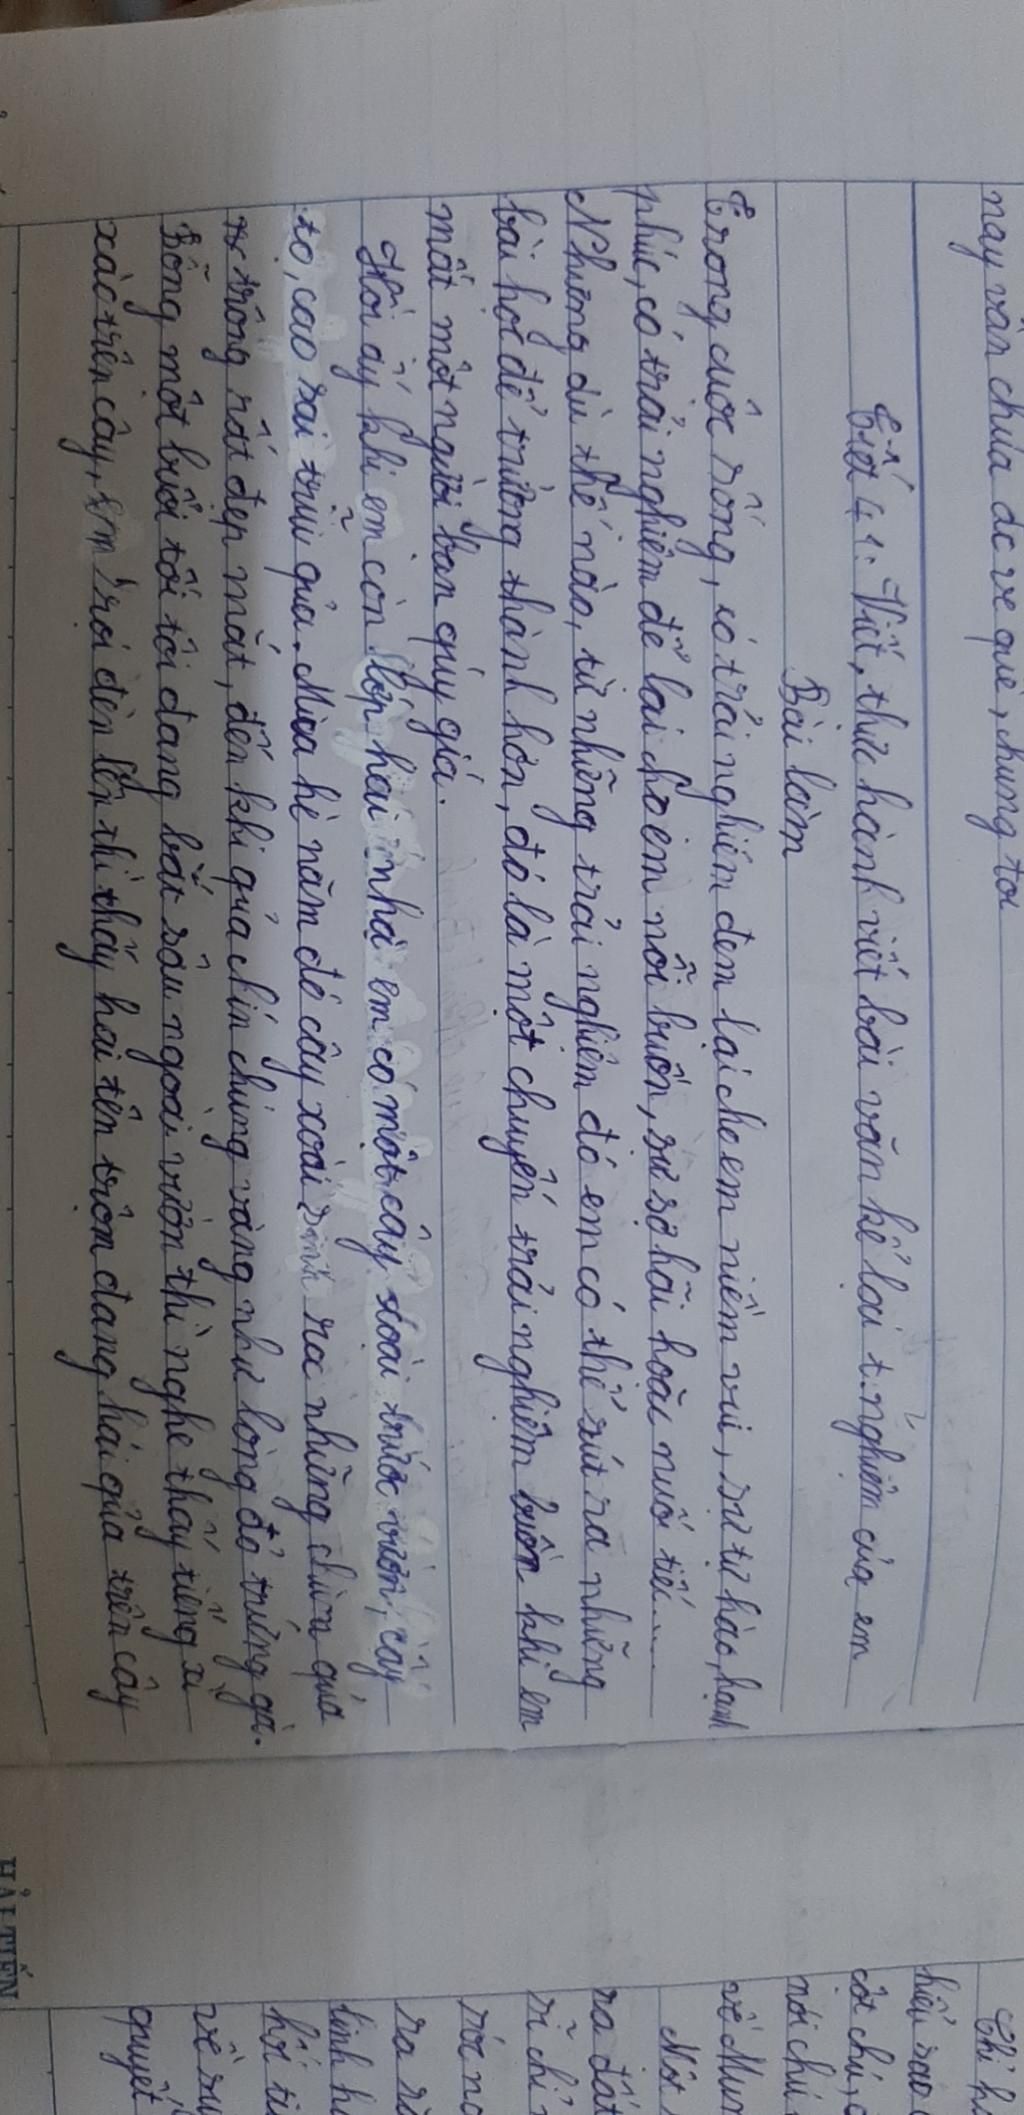 nay vẫn chưa dc về quê, chúng tôi
Tiết 41: Viết, thực hành viết bài văn kể lại t.nghiệm của em
Bài làm
Trong cuộc sống, có trải nghiệm đem lại cho em niềm vui, sự tự hào, hạnh
phúc, có trải nghiệm để lại cho em nỗi buồn, sự sợ hãi hoặc nuối tiếc....
Nhưng dù thế nào, từ những trải nghiệm đó em có thể rút ra những
bài học để trưởng thành hơn, đó là một chuyến trải nghiệm buồn khi em
mất một người bạn quý giá.
Hồi ấy khi em còn lớp hai nhà em có một cây xoài trước vườn, cây
to, cao sai trũi quả. Mùa hè năm đó cây xoài sinh ra những chùm quả
trông rất đẹp mắt, đến khi quả chín chúng vàng như lòng đỏ trứng gà.
Bỗng một buổi tối tôi đang bắt sâu ngoài vườn thì nghe thấy tiếng xì
xào trên cây, em rọi đèn lên thì thấy hai tên trộm đang hái quả trên cây
HẢI TIẾN
Chỉ h
hiểu sao
cột chú, c
nói chú
về Mun
Một
ra đất
rồi chỉ
ra r
linh h
hối ti
về su
quyết